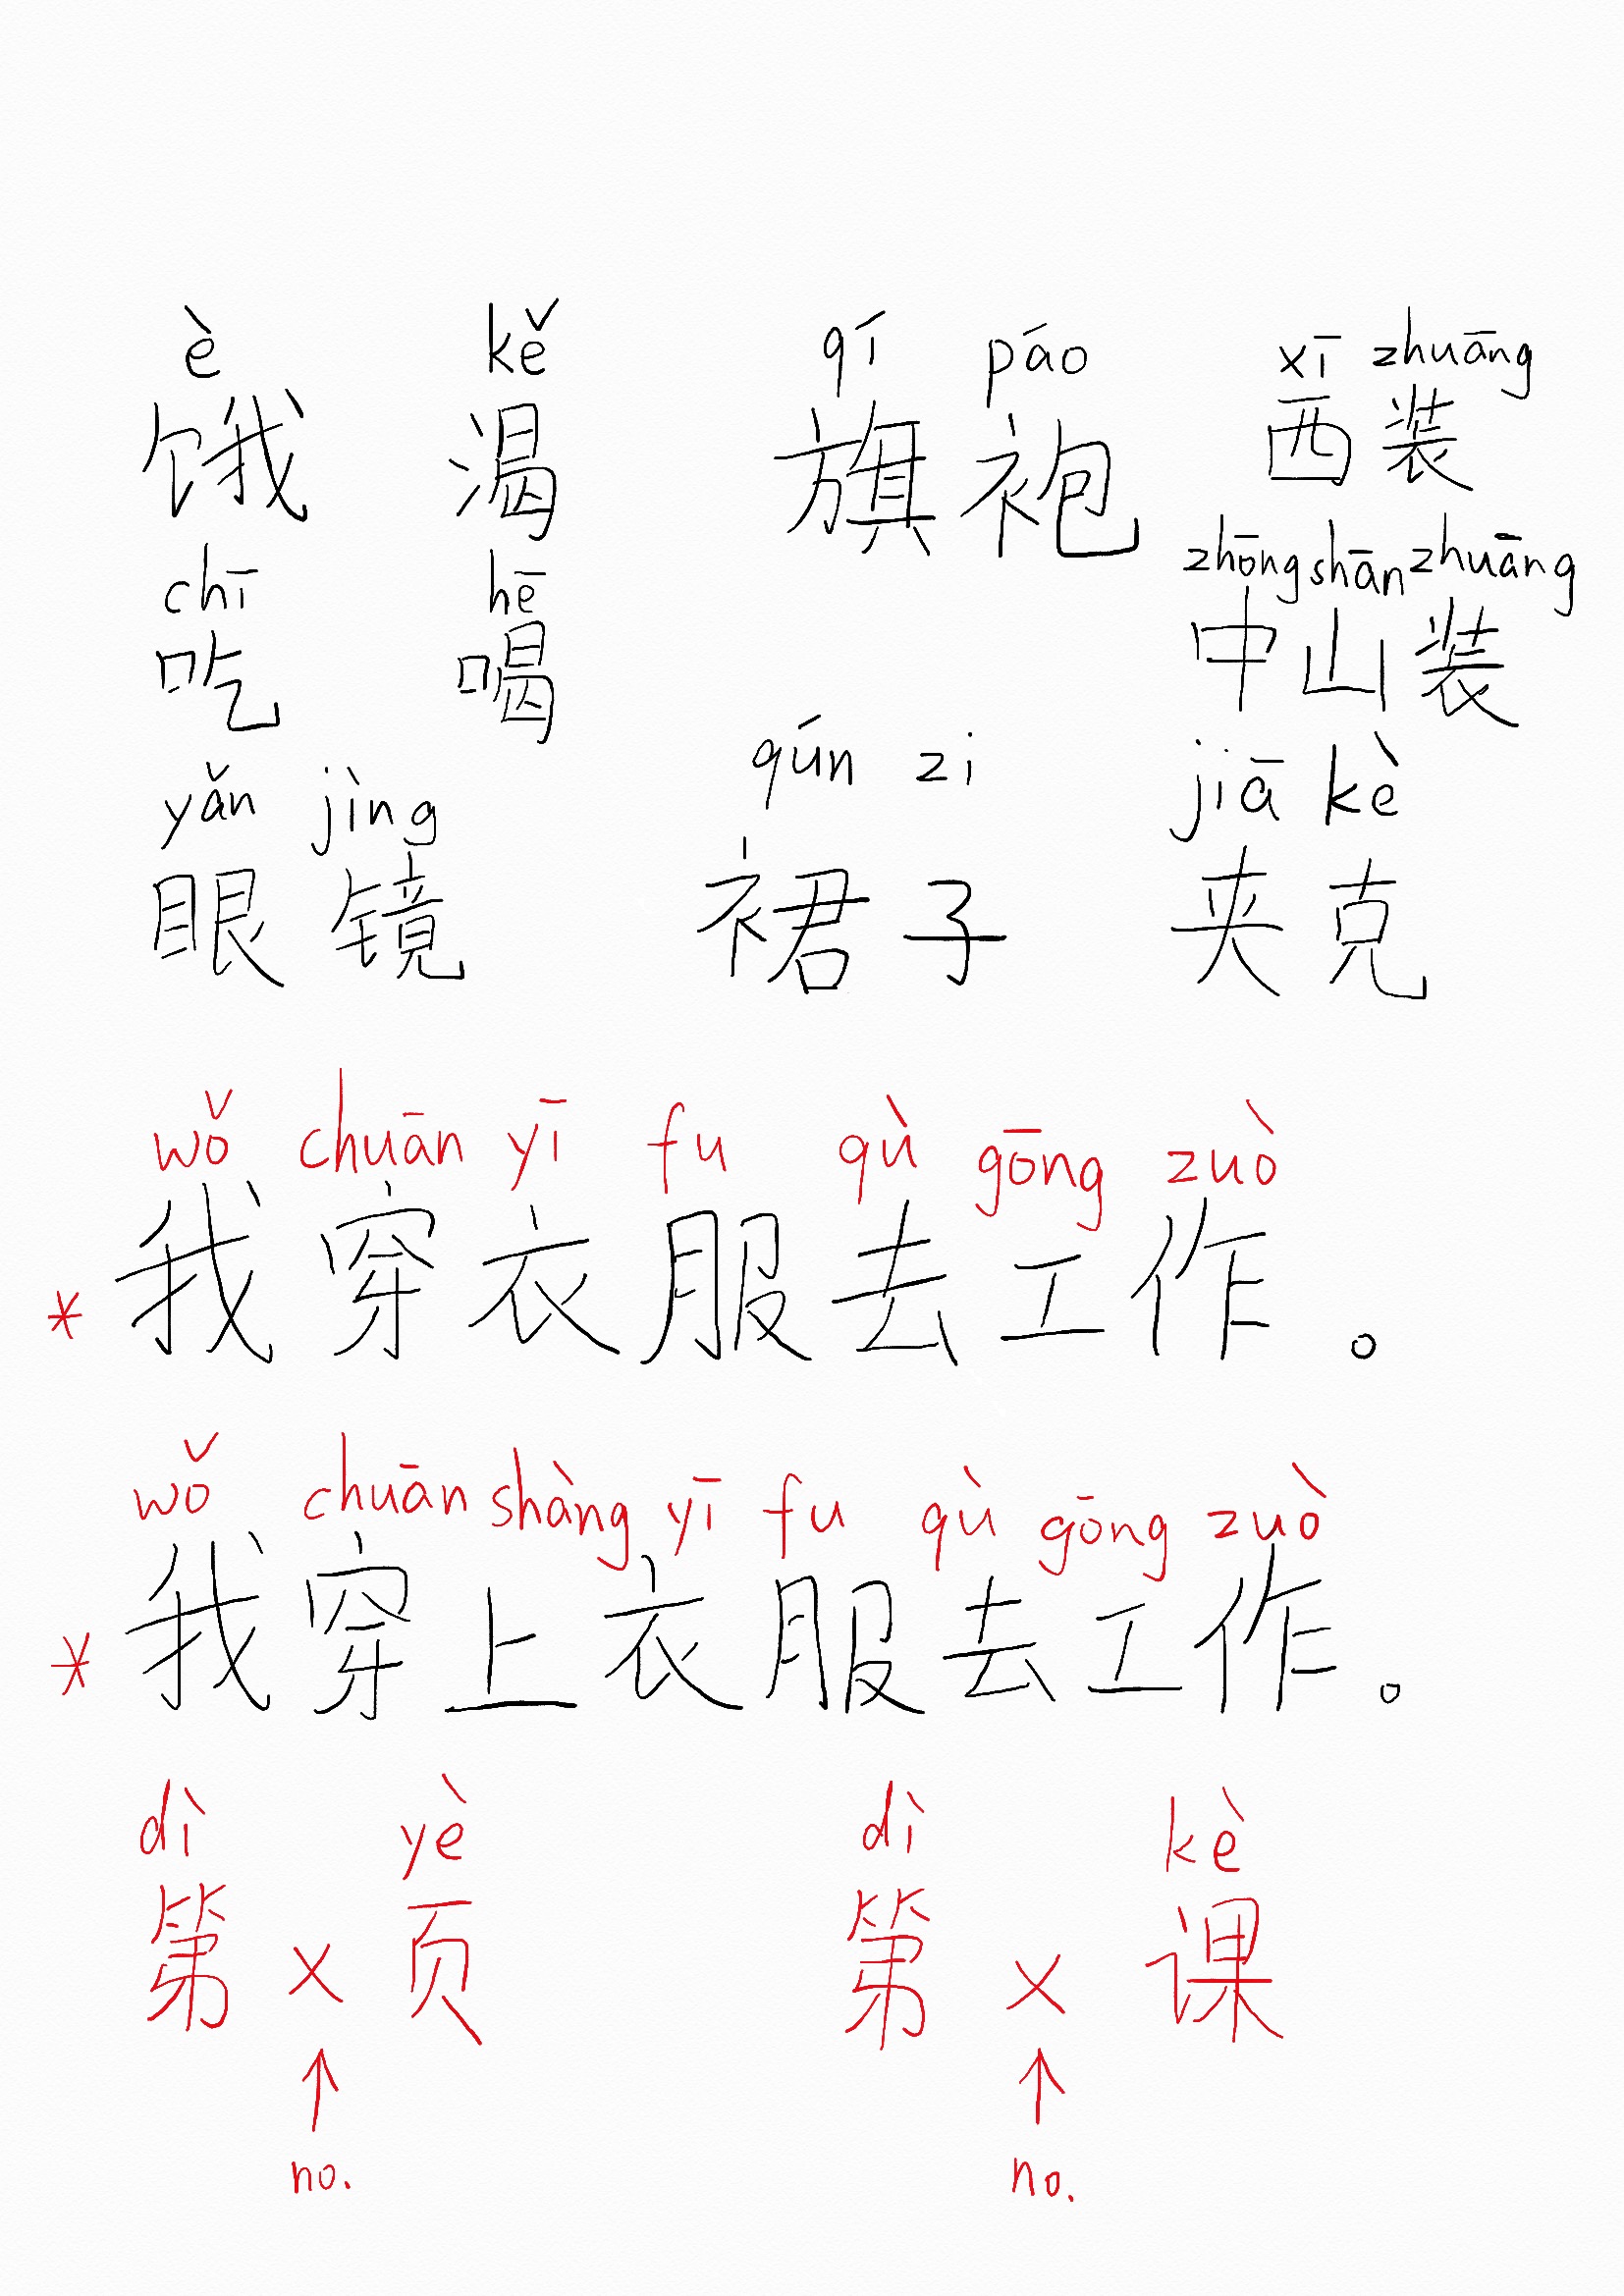 è kě qí páo xī zhuāng
饿 渴 旗袍 西装
chī hē zhōng shān zhuāng
吃 喝 中山装
yǎn jìng qún zi jiā kè
眼镜 裙子 夹克
wǒ chuān yī fu qù gōng zuò
* 我穿衣服去工作。
wǒ chuān shàng yī fu qù gōng zuò
* 我穿上衣服去工作。
dì yè dì kè
第 × 页 第 × 课
↑ ↑
no. no.